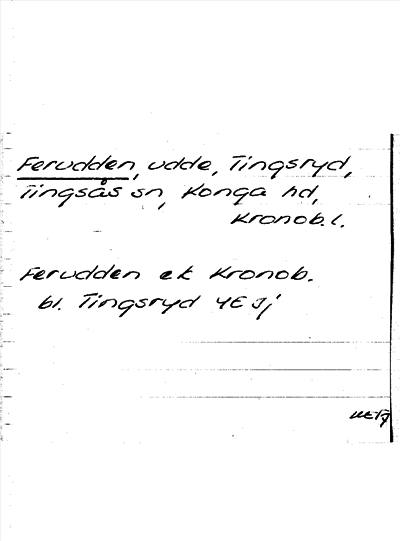 Ferudden, udde, Tingsryd,
Tingsås sn, Konga hd,
Kronob. l.
Ferudden ek Kronob.
bl. Tingsryd 4E Sj